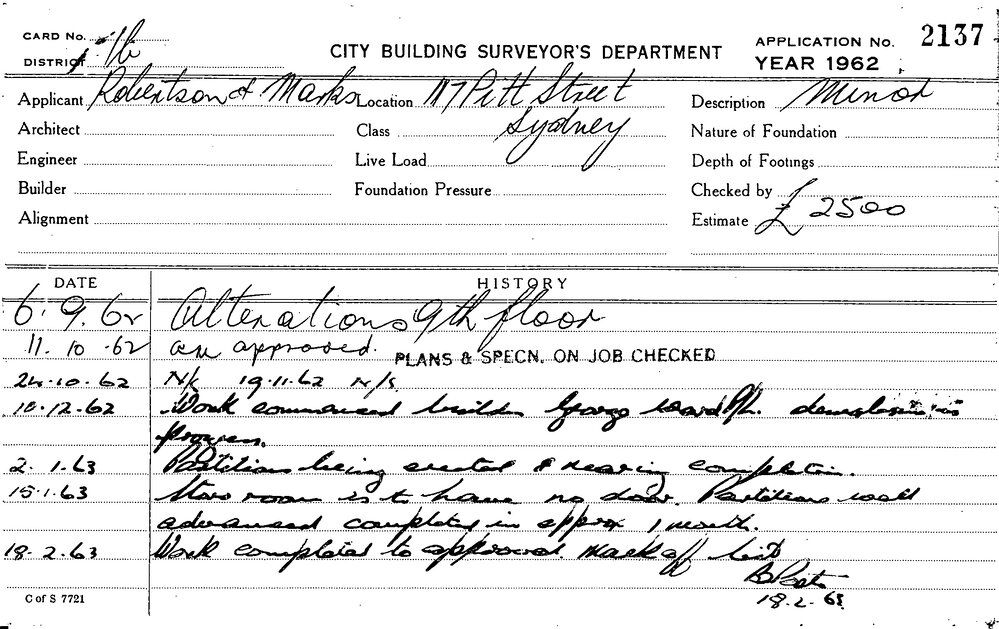 CARD No.
CITY BUILDING SURVEYOR'S DEPARTMENT
APPLICATION No. 2137
DISTRICT
YEAR 1962
Applicant Robertson & Marks Location 117 Pitt Street Description Minor
Architect Class Sydney Nature of Foundation
Engineer Live Load Depth of Footings
Builder Foundation Pressure Checked by
Alignment Estimate £ 2500
DATE HISTORY
6.9.62 Alterations 9th floor
11.10.62 as approved. PLANS & SPECN. ON JOB CHECKED
24.10.62 N/S 19.11.62 N/S
10.12.62 Work commenced builder George Ward P/L. demolition in
progress.
2.1.63 Partitions being erected & nearing completion.
15.1.63 Store room is to have no door. Partitions well
advanced completed in approx 1 month.
18.2.63 Work completed to approval mark off list
18.2.63
C of S 7721